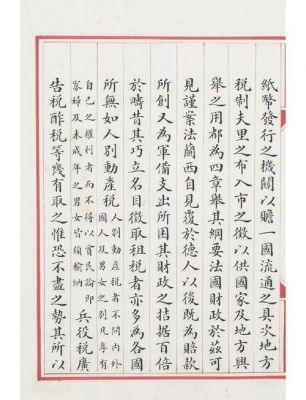 紙幣發行之機關以贍一國流通之具次地方
稅制夫里之布入市之徵以供國家及地方興
舉之用都為四章舉其綱要法國財政於茲可
見謹案法蘭西自見覆於德人以後既為賠款
所創又為軍備支出所困其財政之拮据百倍
於時昔其巧立名目徵取租稅者亦多為各國
所無如人別動產稅人別動產稅者不問內外
國人及男女之別凡享有
自己之權利者而不得以貧民論即
寡婦及未成年之男女皆須輸納兵役稅廣
告稅酢稅等幾有取之惟恐不盡之勢其所以